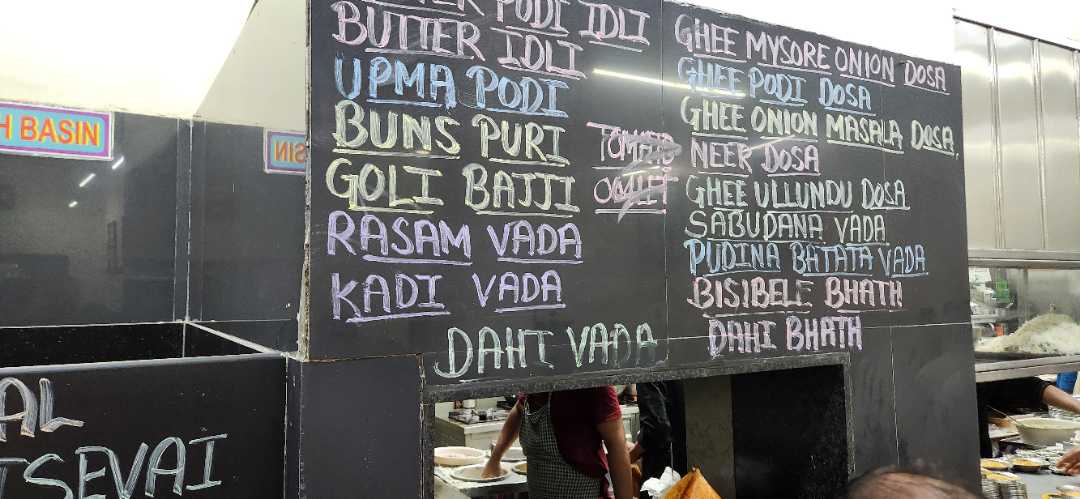 PODI IDLI
BUTTER IDLI
UPMA PODI
BUNS PURI
GOLI BAJJI
RASAM VADA
KADI VADA
DAHI VADA
TOMATO
OMLET
GHEE MYSORE ONION DOSA
GHEE PODI DOSA
GHEE ONION MASALA DOSA,
NEER DOSA
GHEE ULLUNDU DOSA
SABUDANA VADA
PUDINA BATATA VADA
BISIBELE BHATH
DAHI BHATH
H BASIN
AL
SEVAI